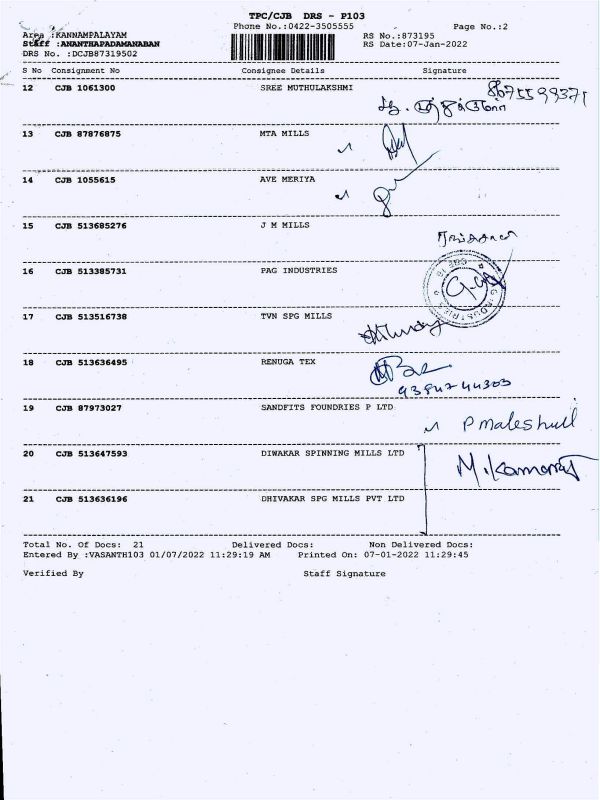 TPC/CJB DRS - P103
Phone No.:0422-3505555 Page No.:2
Area :KANNAMPALAYAM RS No.:873195
Staff :ANANTHAPADAMANABAN RS Date:07-Jan-2022
DRS No. :DCJB87319502
S No Consignment No Consignee Details Signature
12 CJB 1061300 SREE MUTHULAKSHMI 8675599371
13 CJB 87876875 MTA MILLS
14 CJB 1055615 AVE MERIYA
15 CJB 513685276 J M MILLS
16 CJB 513385731 PAG INDUSTRIES
17 CJB 513516738 TVN SPG MILLS
18 CJB 513636495 RENUGA TEX
9384744303
19 CJB 87973027 SANDFITS FOUNDRIES P LTD
20 CJB 513647593 DIWAKAR SPINNING MILLS LTD
21 CJB 513636196 DHIVAKAR SPG MILLS PVT LTD
Total No. Of Docs: 21 Delivered Docs: Non Delivered Docs:
Entered By :VASANTH103 01/07/2022 11:29:19 AM Printed On: 07-01-2022 11:29:45
Verified By Staff Signature